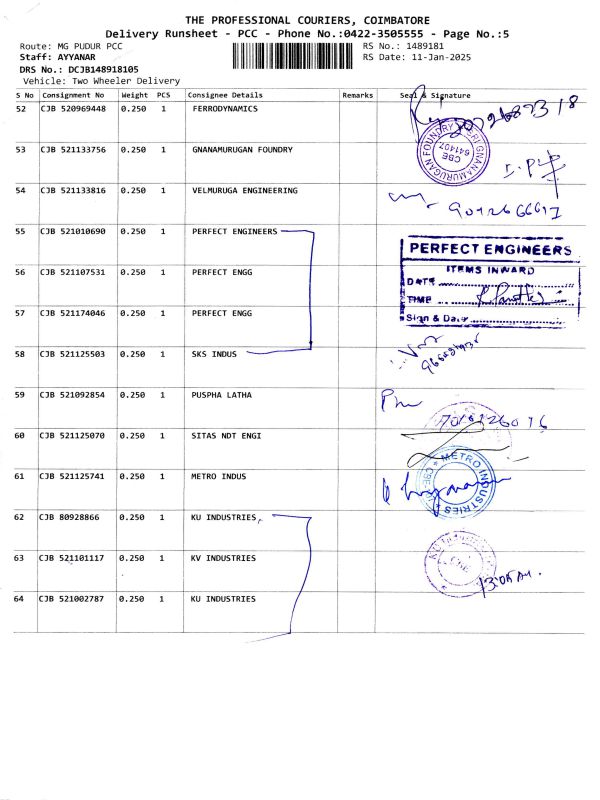 THE PROFESSIONAL COURIERS, COIMBATORE
Delivery Runsheet - PCC - Phone No.:0422-3505555 - Page No.:5
Route: MG PUDUR PCC RS No.: 1489181
Staff: AYYANAR RS Date: 11-Jan-2025
DRS No.: DCJB148918105
Vehicle: Two Wheeler Delivery
S No Consignment No Weight PCS Consignee Details Remarks Seal & Signature
52 CJB 520969448 0.250 1 FERRODYNAMICS
53 CJB 521133756 0.250 1 GNANAMURUGAN FOUNDRY
SRI GNANAMURUGAN FOUNDRY
CBE
641407
54 CJB 521133816 0.250 1 VELMURUGA ENGINEERING
55 CJB 521010690 0.250 1 PERFECT ENGINEERS
PERFECT ENGINEERS
ITEMS INWARD
DATE
TIME
Sign & Date
56 CJB 521107531 0.250 1 PERFECT ENGG
57 CJB 521174046 0.250 1 PERFECT ENGG
58 CJB 521125503 0.250 1 SKS INDUS
59 CJB 521092854 0.250 1 PUSPHA LATHA
60 CJB 521125070 0.250 1 SITAS NDT ENGI
61 CJB 521125741 0.250 1 METRO INDUS
METRO INDUSTRIES
62 CJB 80928866 0.250 1 KU INDUSTRIES
63 CJB 521101117 0.250 1 KV INDUSTRIES
CBE
64 CJB 521002787 0.250 1 KU INDUSTRIES